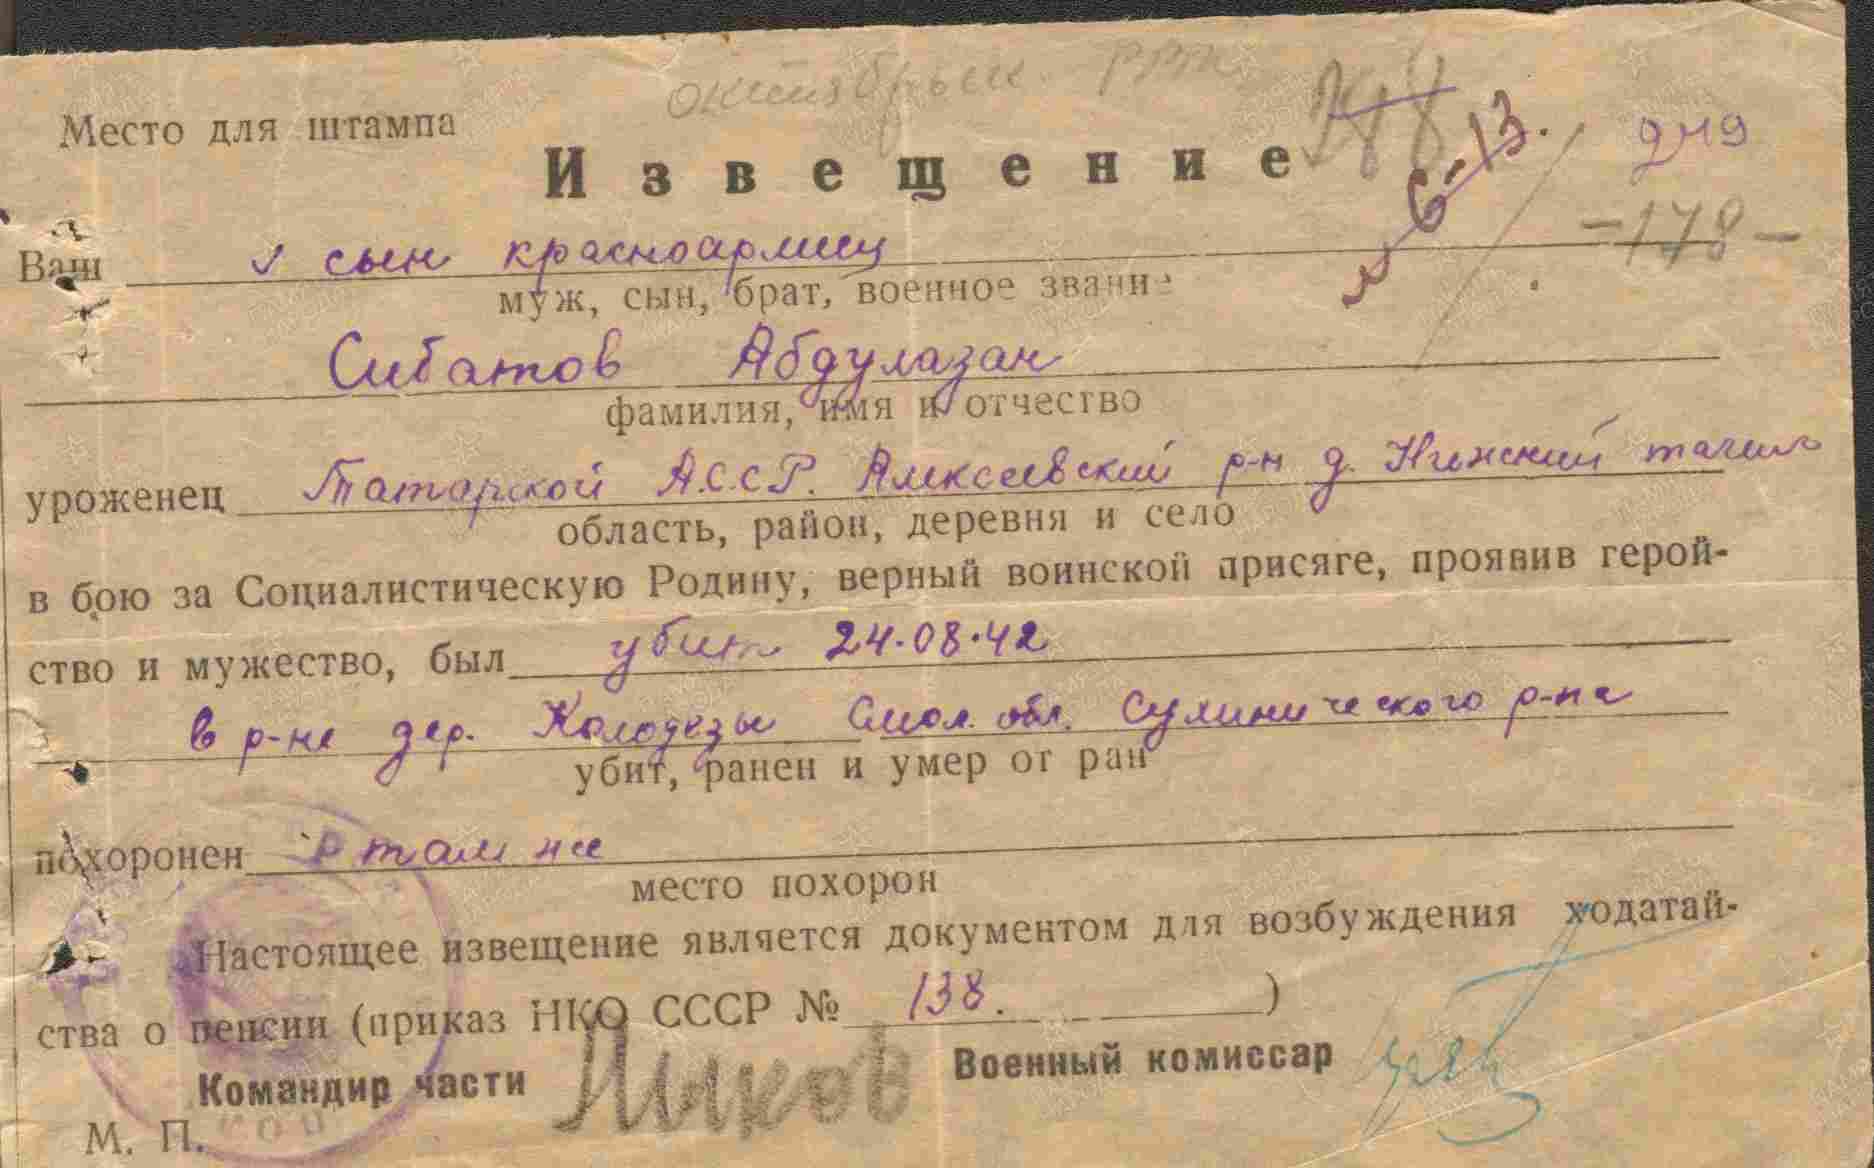 Место для штампа
249
Извещение
6-13.
-178-
Ваш сын красноармеец
муж, сын, брат, военное звание
Сибатов Абдулазан
фамилия, имя и отчество
уроженец Татарской А.С.С.Р. Алексеевский р-н д. Нижний тагил
область, район, деревня и село
в бою за Социалистическую Родину, верный воинской присяге, проявив герой-
ство и мужество, был убит 24.08.42
в р-не дер. Колодезы Смол. обл. Сухинического р-на
убит, ранен и умер от ран
похоронен там же
место похорон
Настоящее извещение является документом для возбуждения ходатай-
ства о пенсии (приказ НКО СССР № 138. )
Командир части Военный комиссар
М. П.